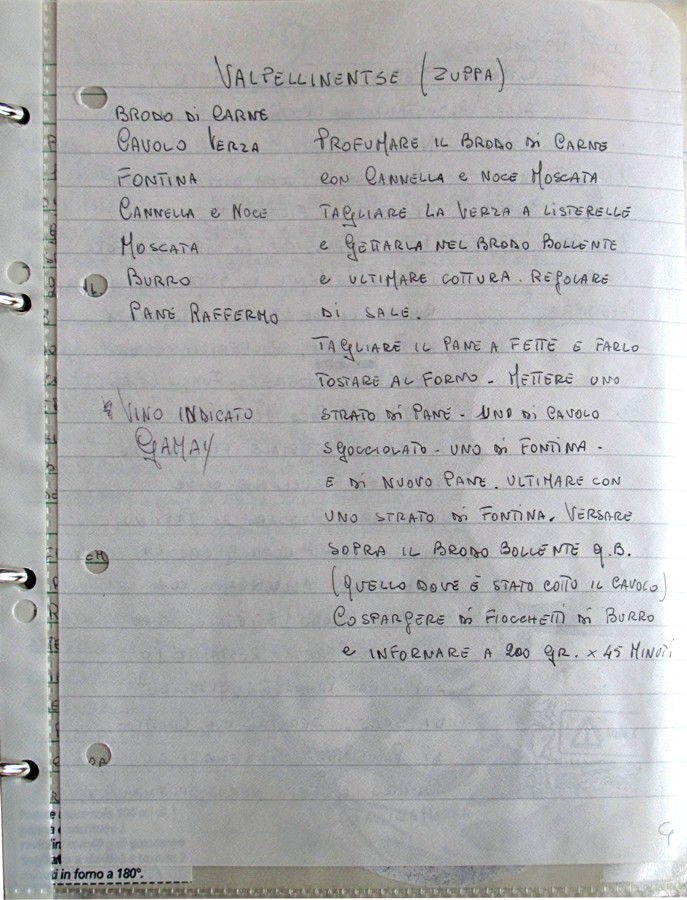 VALPELLINENTSE (ZUPPA)
BRODO DI CARNE
CAVOLO VERZA
FONTINA
CANNELLA e NOCE
MOSCATA
BURRO
PANE RAFFERMO
VINO INDICATO
GAMAY
PROFUMARE IL BRODO DI CARNE
CON CANNELLA e NOCE MOSCATA
TAGLIARE LA VERZA A LISTERELLE
e GETTARLA NEL BRODO BOLLENTE
e ULTIMARE COTTURA. REGOLARE
DI SALE.
TAGLIARE IL PANE A FETTE E FARLO
TOSTARE AL FORNO - METTERE UNO
STRATO DI PANE - UNO DI CAVOLO
SGOCCIOLATO - UNO DI FONTINA -
E DI NUOVO PANE. ULTIMARE CON
UNO STRATO DI FONTINA. VERSARE
SOPRA IL BRODO BOLLENTE q.B.
(QUELLO DOVE È STATO COTTO IL CAVOLO)
COSPARGERE DI FIOCCHETTI DI BURRO
e INFORNARE A 200 GR. x 45 MINUTI
i in forno a 180°.